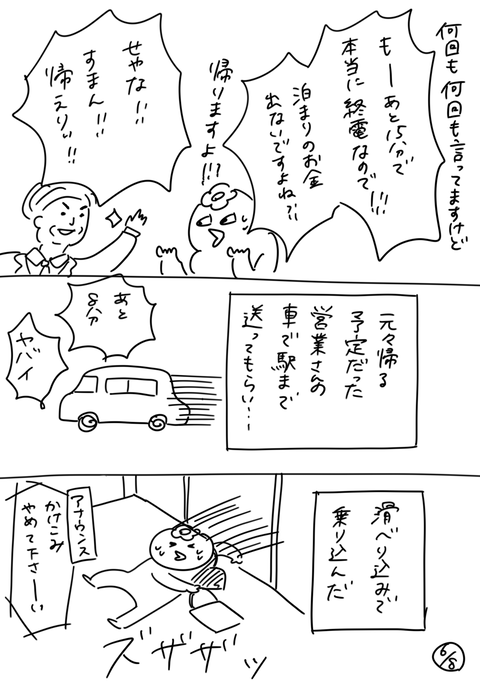 何回も何回も言ってますけど
もーあと15分で
本当に終電なので!!!
泊まりのお金
出ないですよね?!
帰りますよ!!?
せやな!!
すまん!!
帰えりぃ!!
元々帰る
予定だった
営業さんの
車で駅まで
送ってもらい…
あと
8分
ヤバイ
滑べり込みで
乗り込んだ
アナウンス
かけこみ
やめて下さーい
ズザザッ
6/8